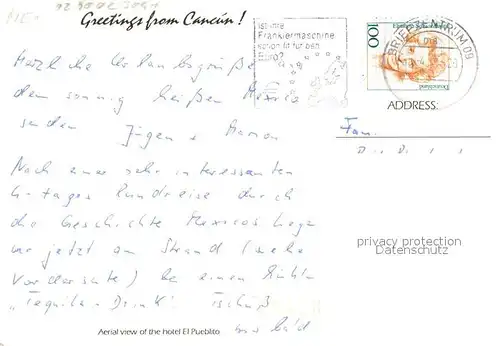 Greetings from Cancún!
Ist Ihre
Frankiermaschine
schon fit für den
Euro?
BRIEFZENTRUM 09
100
Deutschland
ADDRESS:
Herzliche Urlaubsgrüße aus
dem sonnig heißen Mexico
senden Jürgen +
Fam.
Nach einer sehr interessanten
6-tages Rundreise durch
die Geschichte Mexicos liegen
wir jetzt am Strand (siehe
Vorderseite) bei einem kühlen
„Tequila-Drink". Tschüß
bis bald
privacy protection
Datenschutz
Aerial view of the hotel El Pueblito